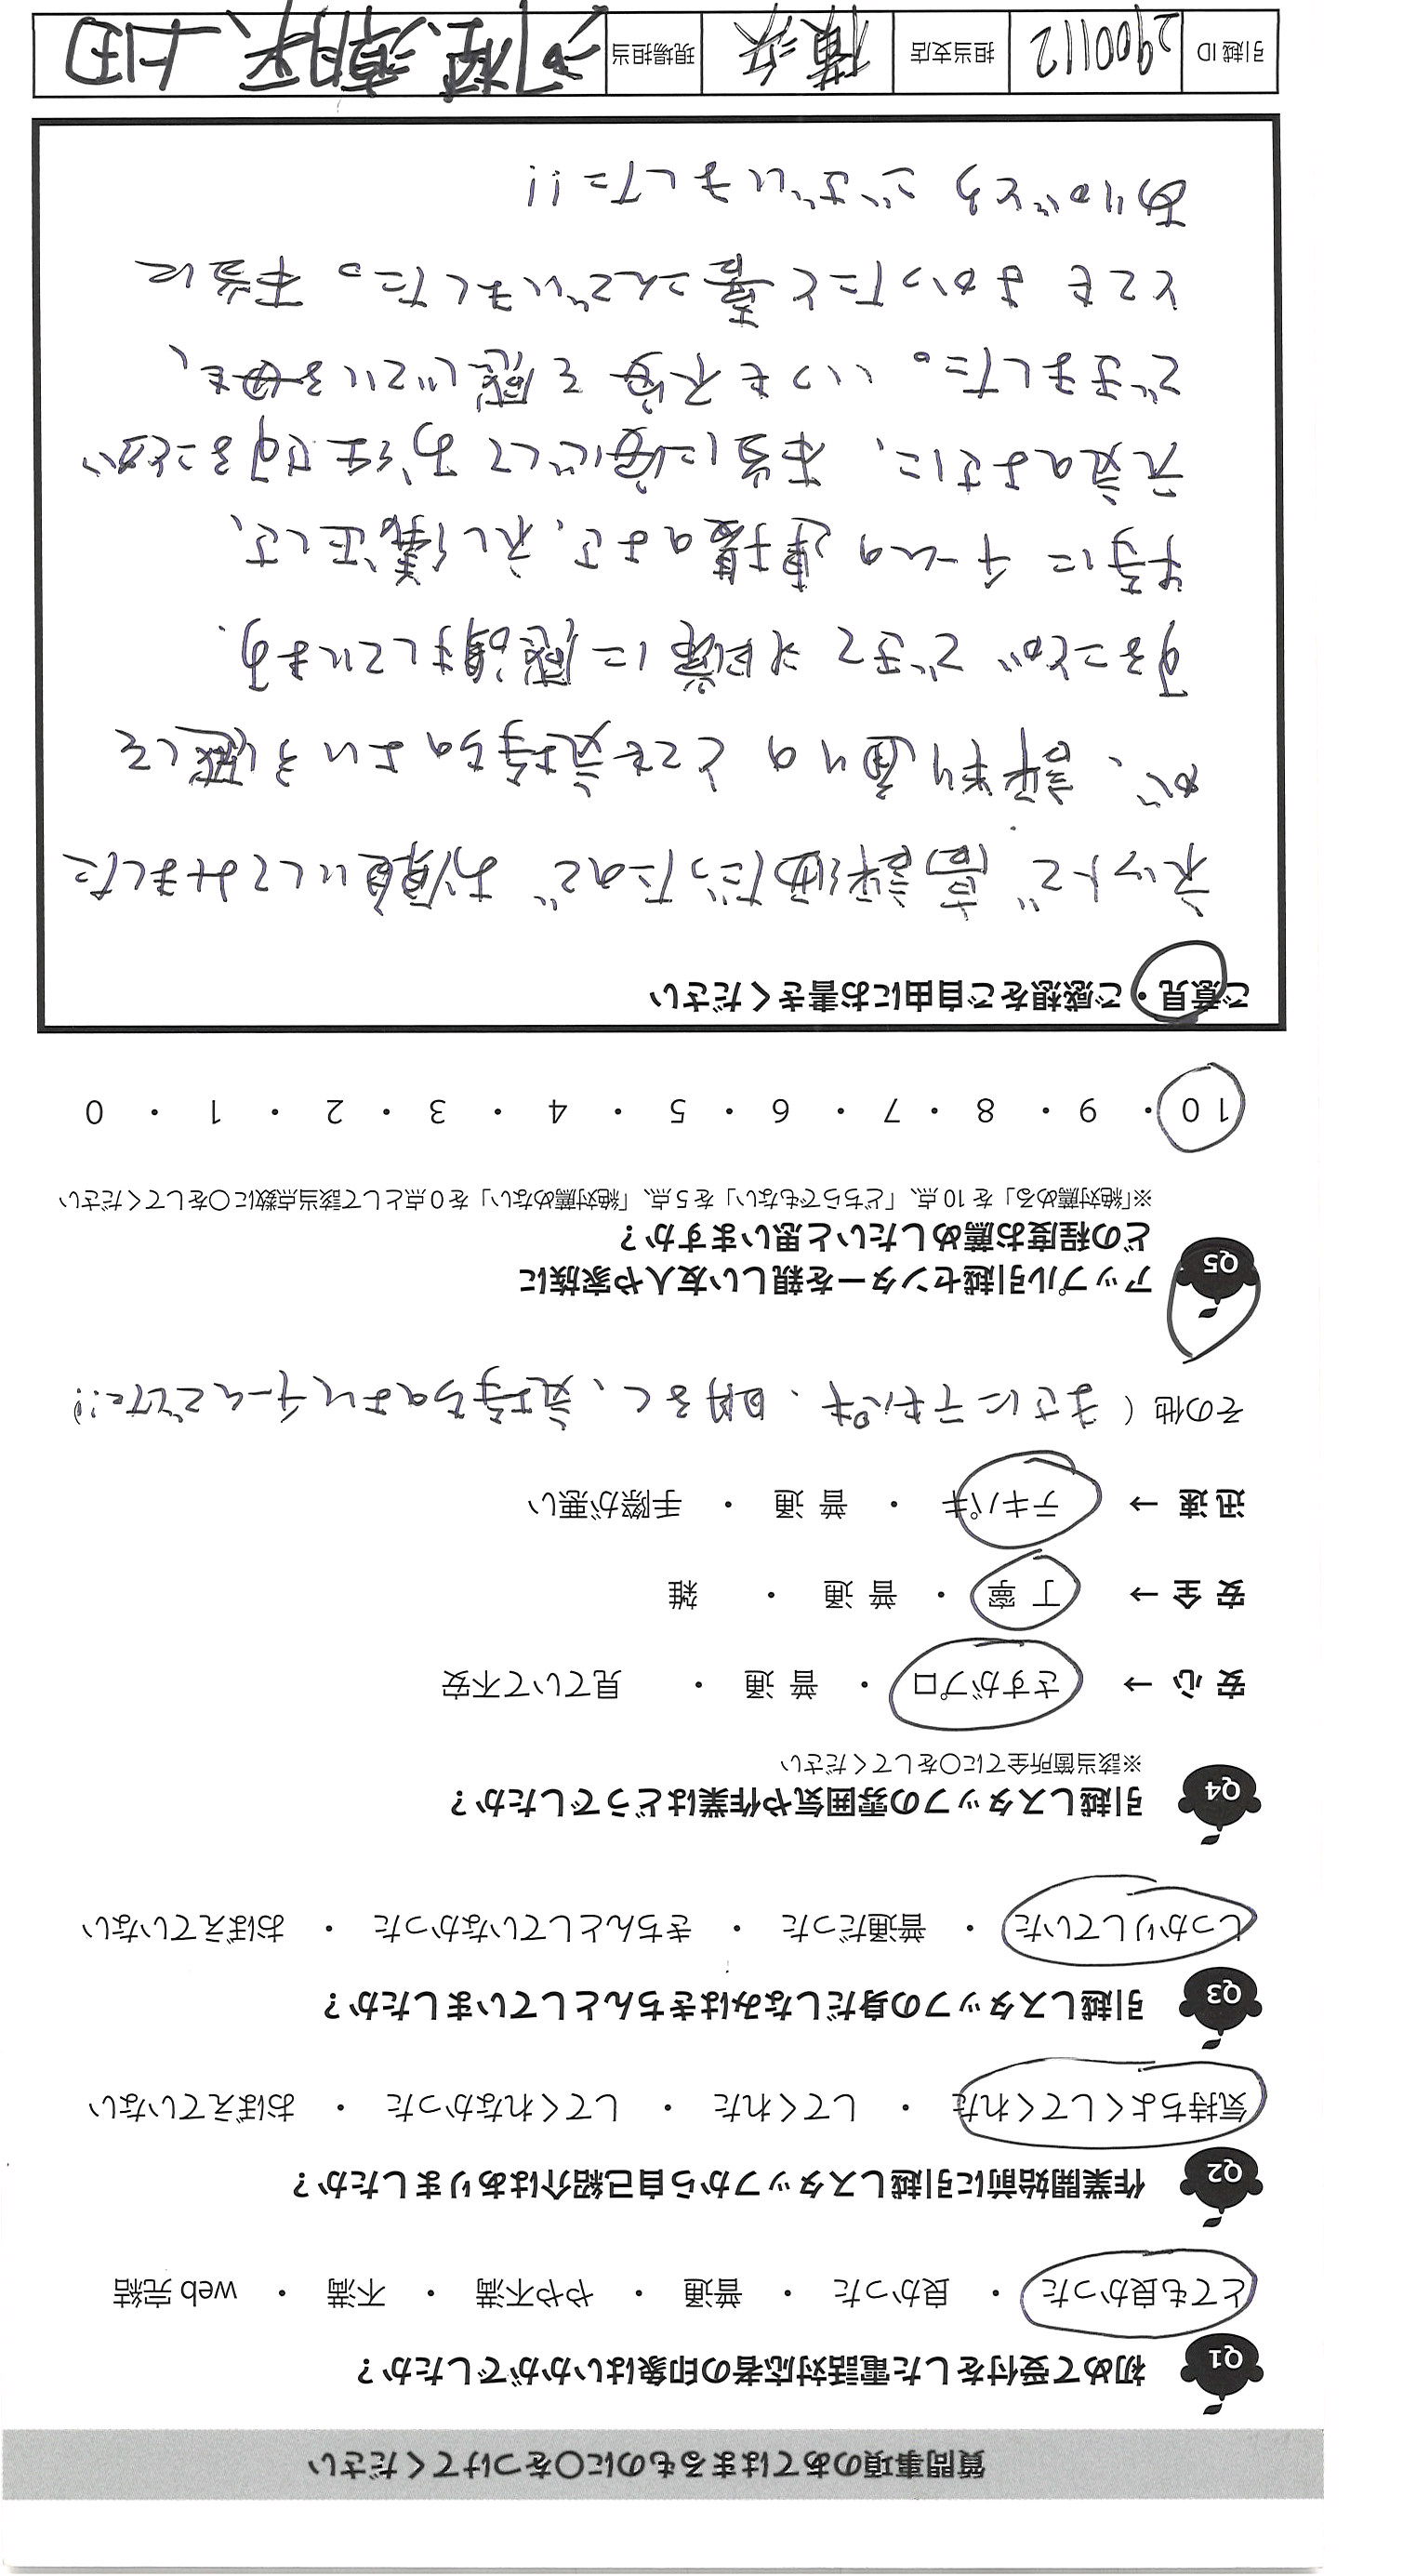 質問事項のあてはまるものに○をつけてください
Q1 初めて受付をした電話対応者の印象はいかがでしたか？
とても良かった ・ 良かった ・ 普通 ・ やや不満 ・ 不満 ・ web完結
Q2 作業開始前に引越しスタッフから自己紹介はありましたか？
気持ちよくしてくれた ・ してくれた ・ してくれなかった ・ おぼえていない
Q3 引越しスタッフの身だしなみはきちんとしていましたか？
しっかりしていた ・ 普通だった ・ きちんとしていなかった ・ おぼえていない
Q4 引越しスタッフの雰囲気や作業はどうでしたか？
※該当箇所全てに○をしてください
安心 → さすがプロ ・ 普通 ・ 見ていて不安
安全 → 丁寧 ・ 普通 ・ 雑
迅速 → テキパキ ・ 普通 ・ 手際が悪い
その他（まさにテキパキ、明るく、気持ちのよいチームでした!!）
Q5 アップル引越センターを親しい友人や家族に
どの程度お薦めしたいと思いますか？
※「絶対薦める」を10点、「どちらでもない」を5点、「絶対薦めない」を0点として該当点数に○をしてください
10 ・ 9 ・ 8 ・ 7 ・ 6 ・ 5 ・ 4 ・ 3 ・ 2 ・ 1 ・ 0
ご意見・ご感想をご自由にお書きください
ネットで高評価だったので お願いしてみました
が、評判通りの とても気持ちのよい引越しを
することができて 非常に感謝しています。
特に チームの連携のよさ、礼儀正しさ、
元気のよさに、本当に安心して お任せすることが
できました。いつも不安を感じている母も、
とても よかったと喜こんでいました。本当に
ありがとう ございました!!
引越ID 2900112 担当支店 横浜 現場担当